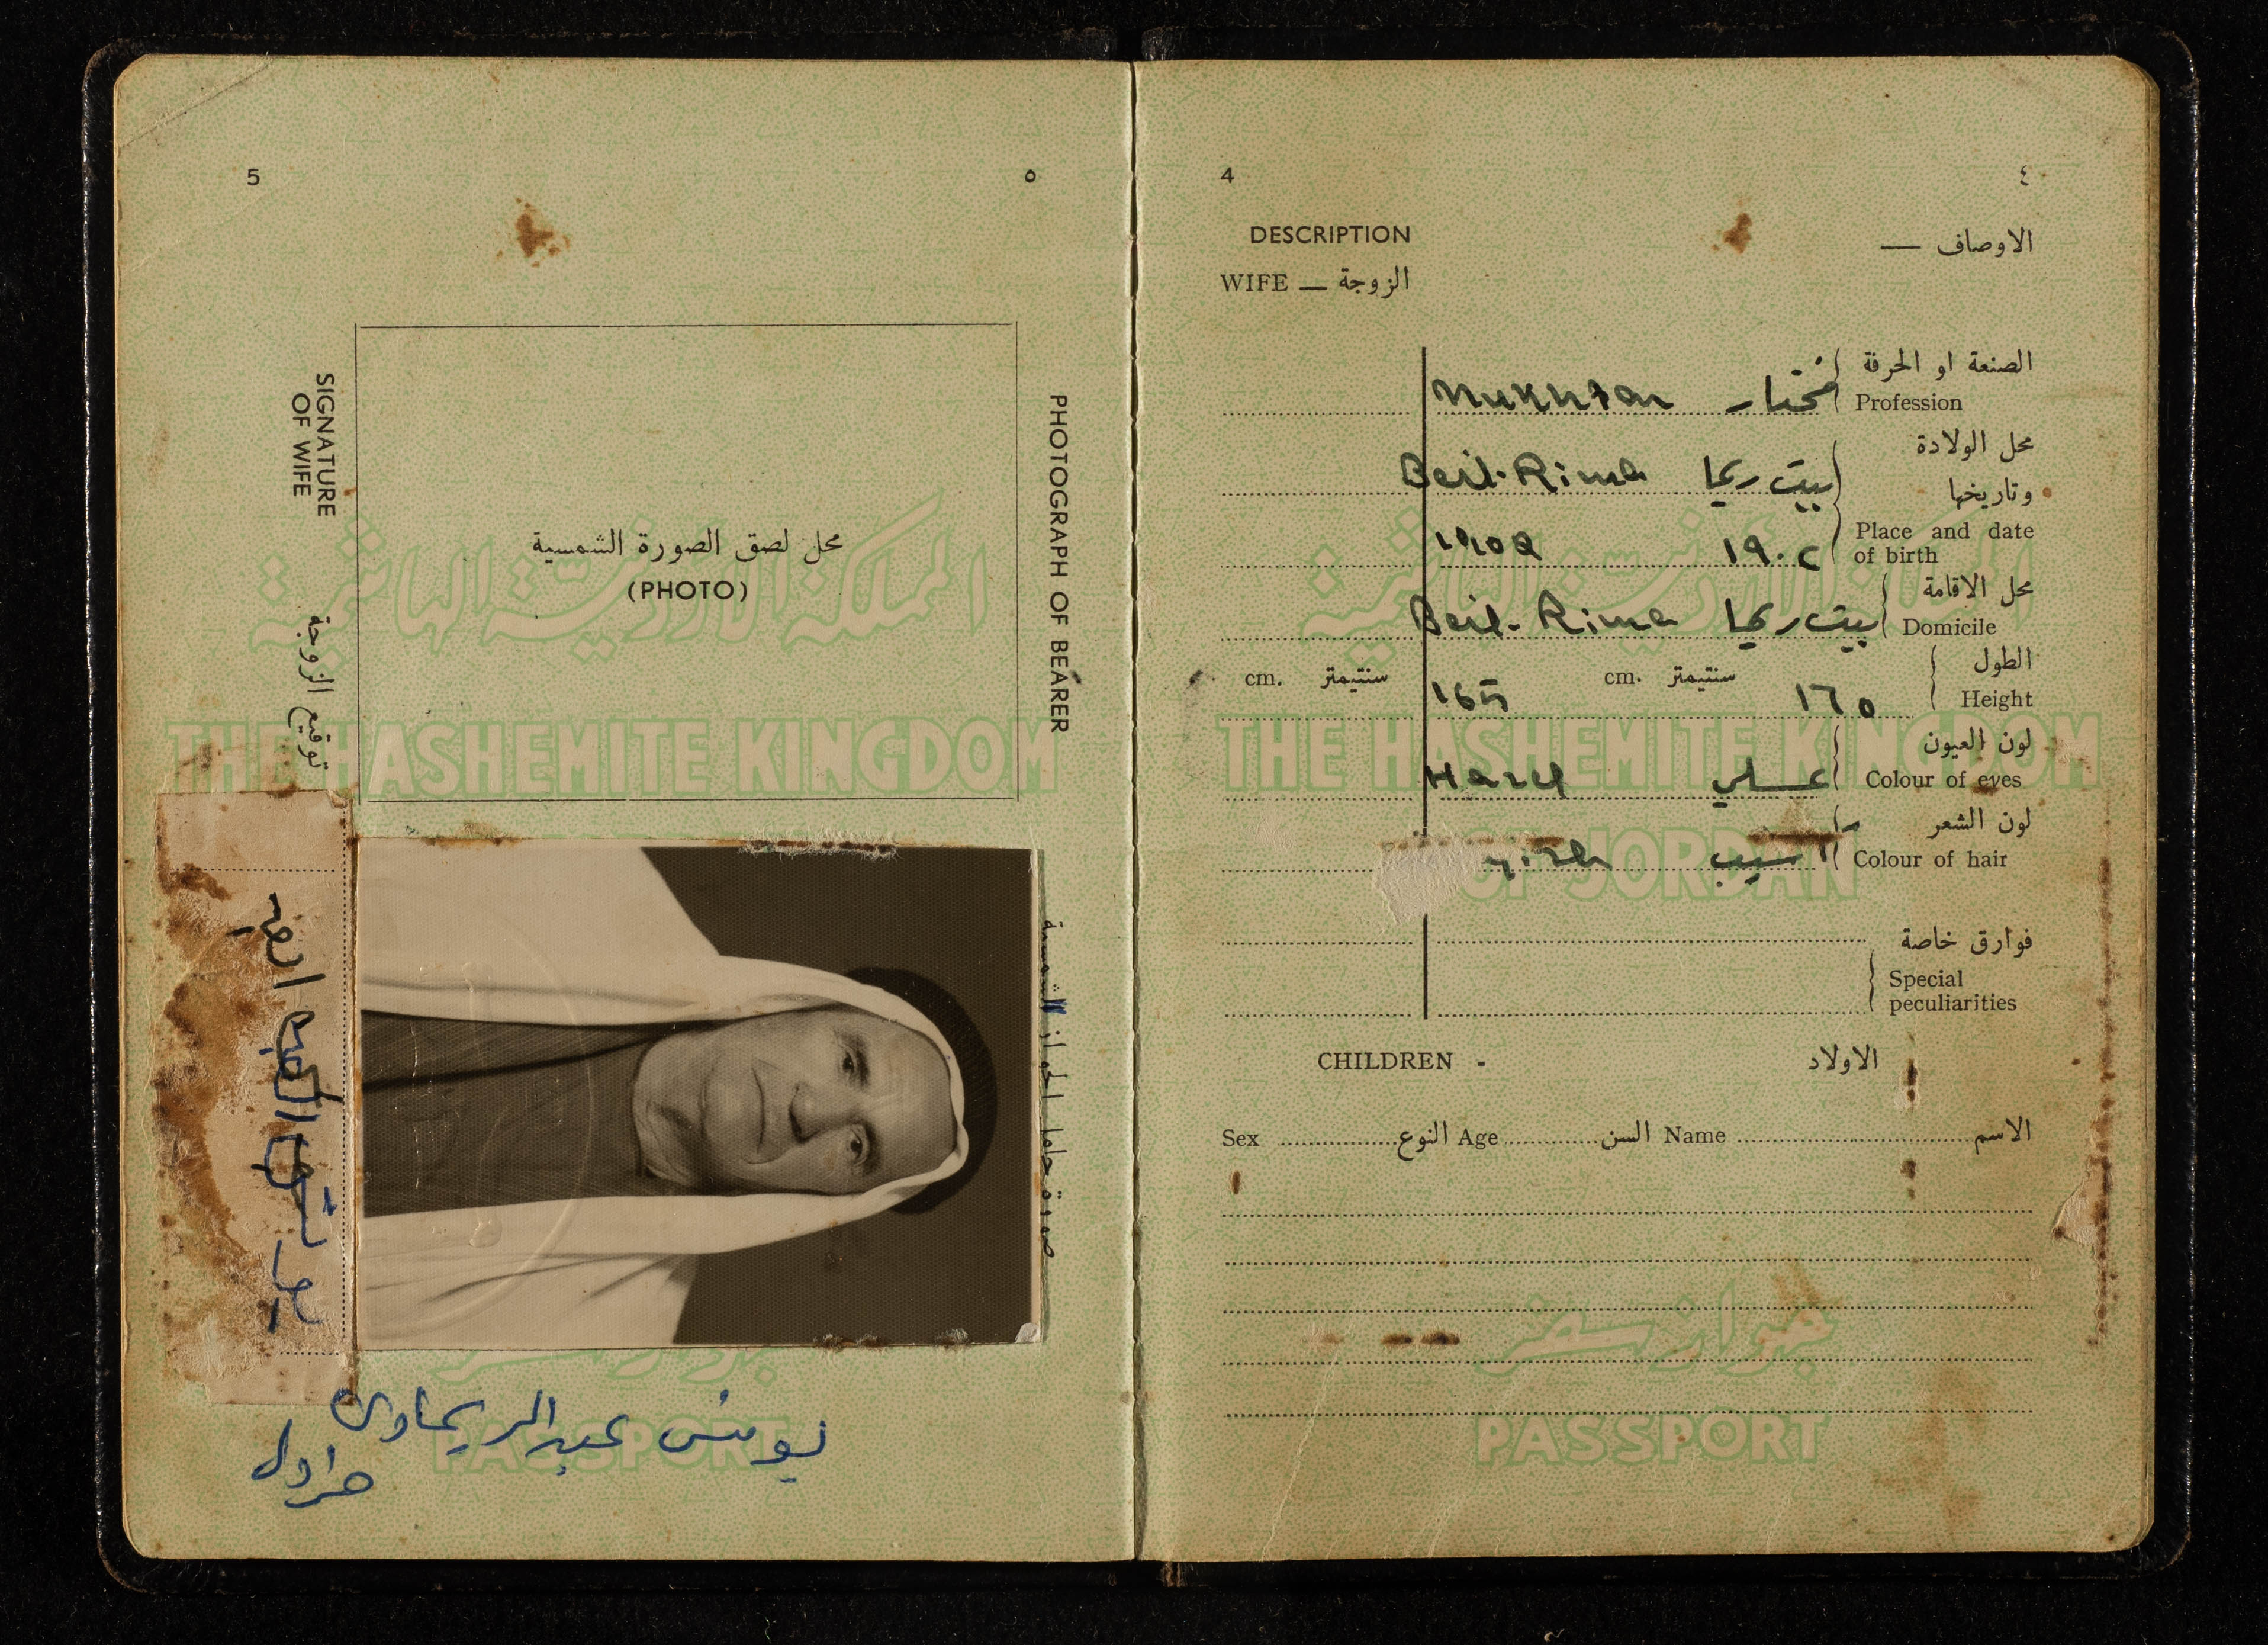 5 ٥
PHOTOGRAPH OF BEARER
محل لصق الصورة الشمسية
(PHOTO)
SIGNATURE
OF WIFE
توقيع الزوجة
صورة حامل الجواز الشمسية
يونس عبد الريماوي
المملكة الأردنية الهاشمية
THE HASHEMITE KINGDOM
PASSPORT
4 ٤
DESCRIPTION الاوصاف —
WIFE — الزوجة
الصنعة او الحرفة
Profession
مختار Mukhtar
محل الولادة
وتاريخها
Place and date
of birth
بيت ريما Beit-Rima
١٩٠٢ 1902
محل الاقامة
Domicile
بيت ريما Beit-Rima
الطول
Height
cm. سنتيمتر cm. سنتيمتر
١٦٥ 165
لون العيون
Colour of eyes
عسلي Hazel
لون الشعر
Colour of hair
فوارق خاصة
Special
peculiarities
CHILDREN - الاولاد
Sex النوع Age السن Name الاسم
المملكة الأردنية الهاشمية
THE HASHEMITE KINGDOM
OF JORDAN
جواز سفر
PASSPORT